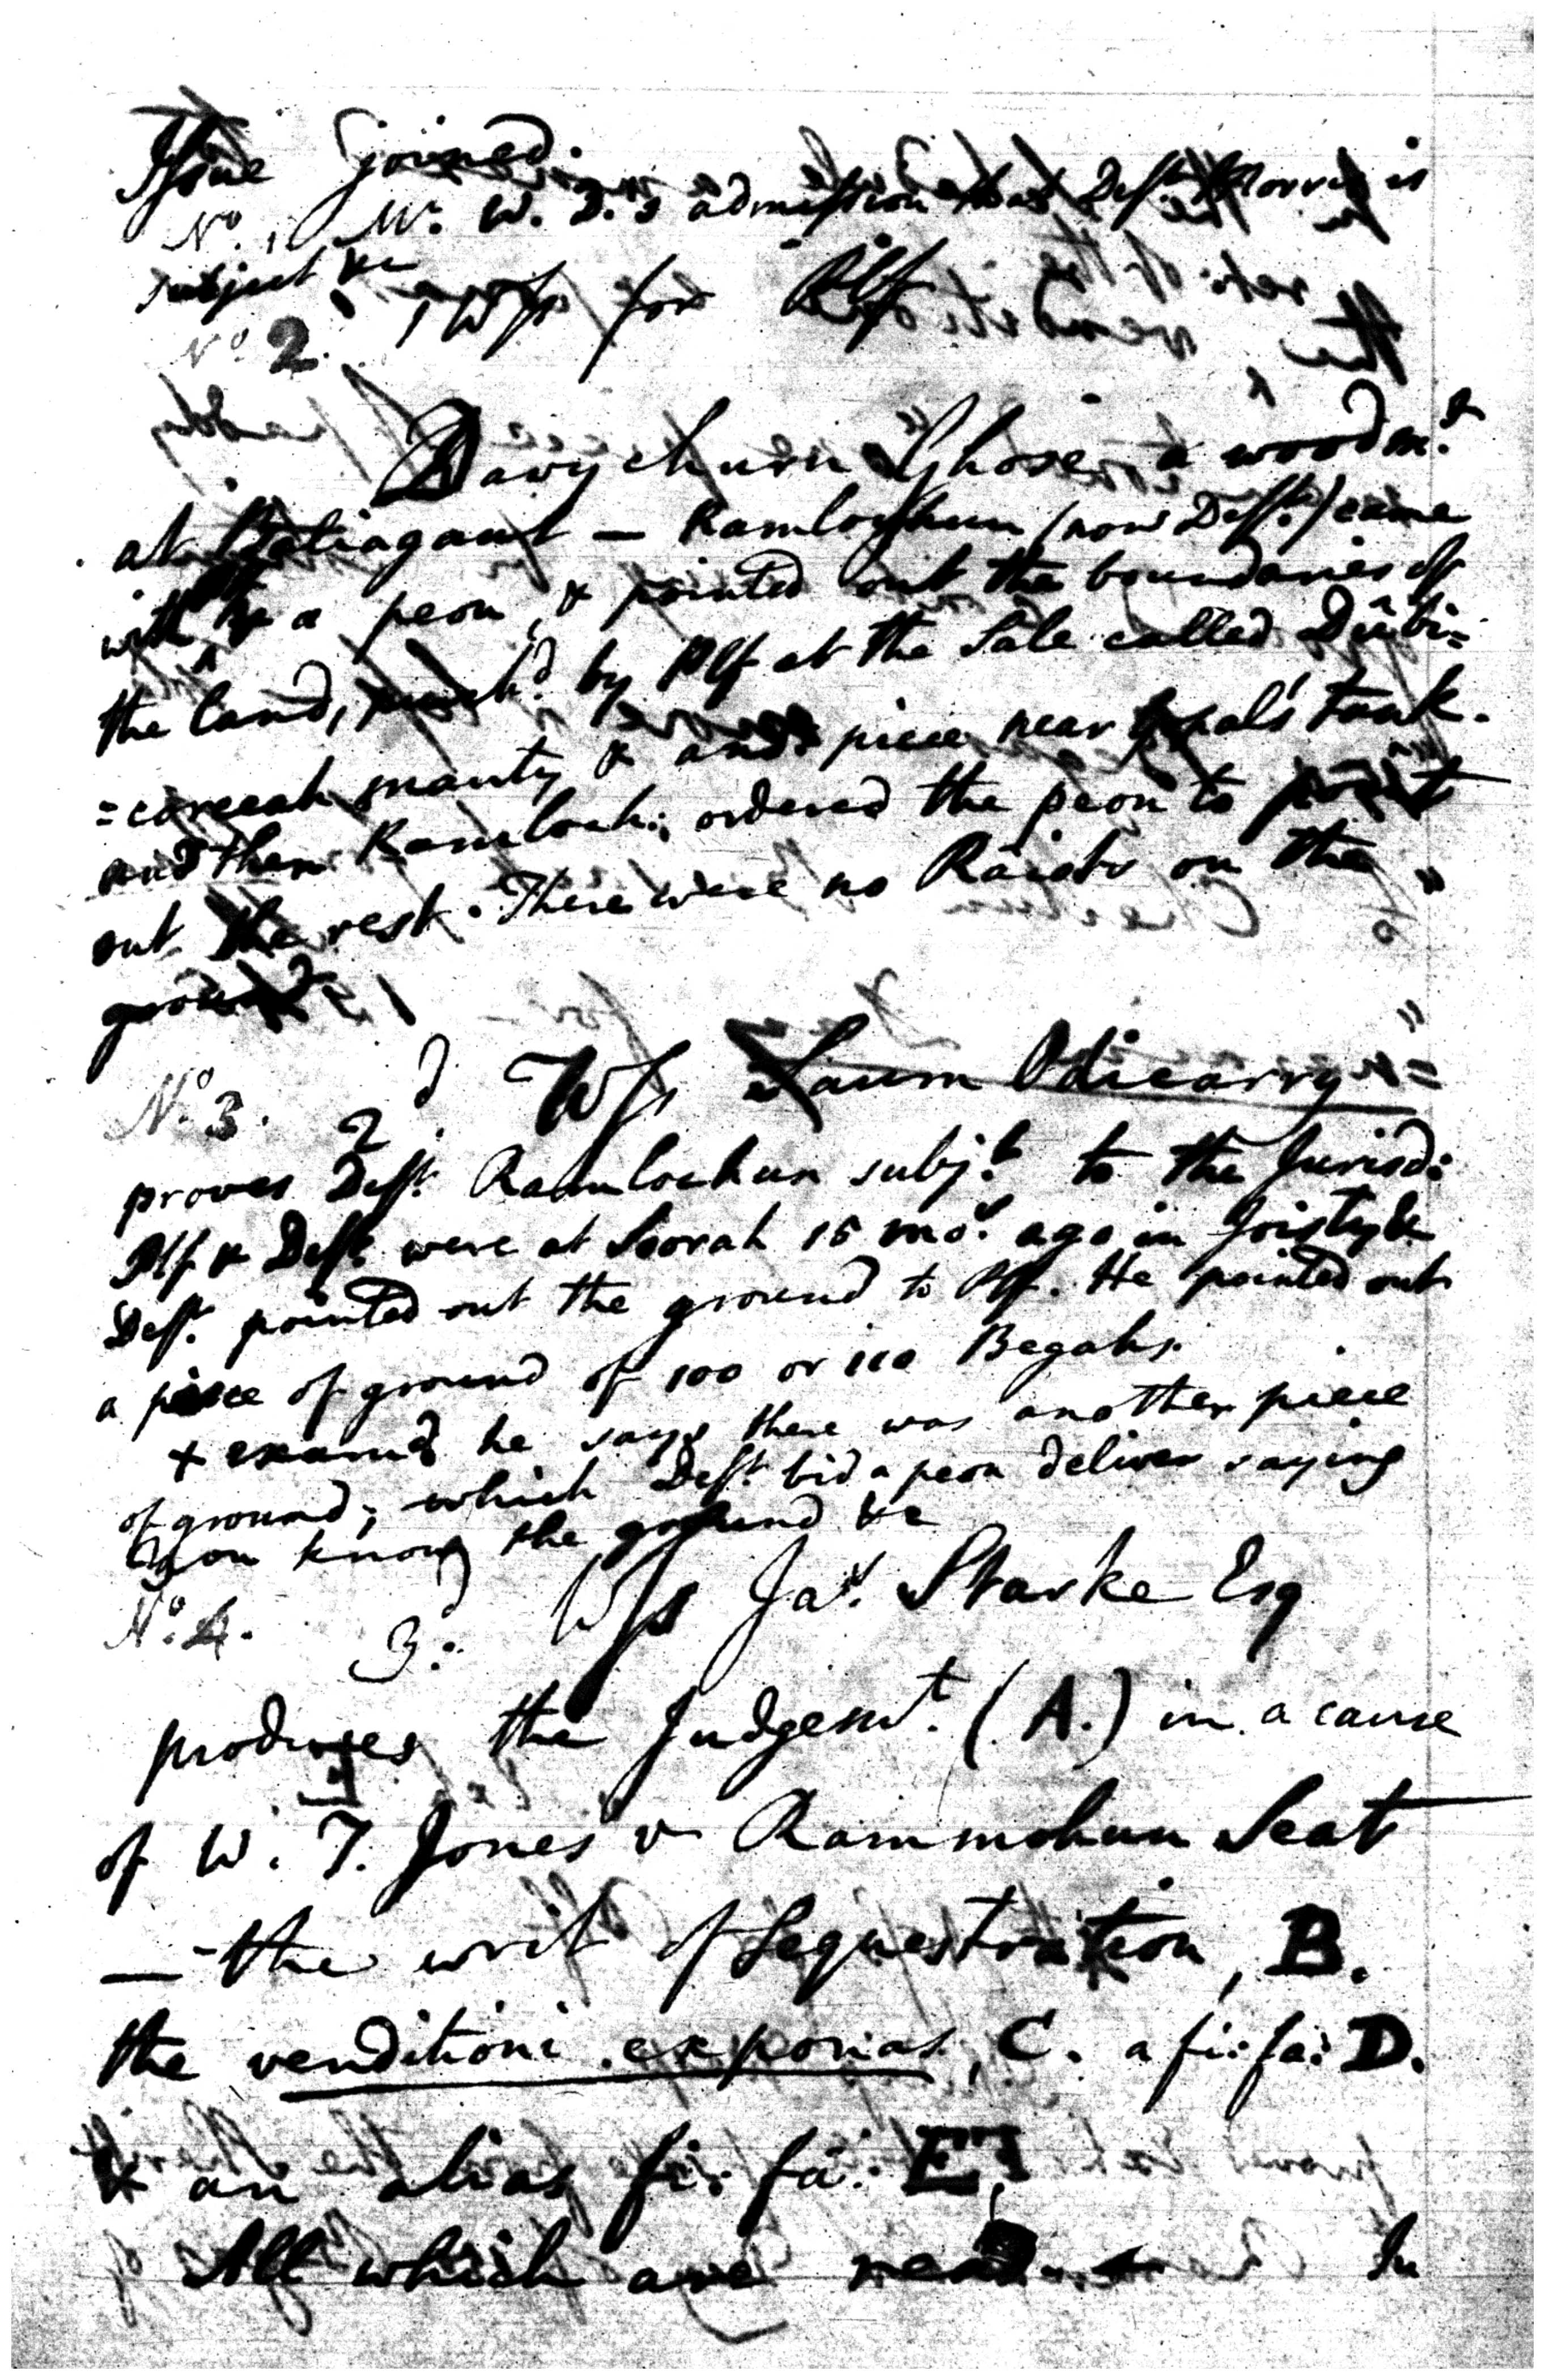 Issue joined.
No. 1 Mr. W. D.'s admission that Deft. Morris is
subject &c
No 2. 1 Wss for Plf
Davychurn Ghose, a woodmt.
at Baliagaut — Ramlochun (now Deft.) came
with a peon, & pointed out the boundaries of
the land, purchd. by Plf at the Sale called Dûbi=
=correah manty & anor piece near Gopal's tank.
and then Ramloch: ordered the peon to point
out the rest. There were no Raiots on the
ground
No. 3. 2d. Wss Saum Odicarry
proves Deft. Ramlochun subjt. to the Jurisd:
Plf & Deft. were at Soorah 15 mos. ago in Joisty &
Deft. pointed out the ground to Plf. He pointed out
a piece of ground of 100 or 110 Begahs.
+ examd he says there was another piece
of ground; which Deft. bid a peon deliver saying
you know the ground &c
No. 4. 3d. Wss Jas. Starke Esq
produces the Judgemt. (A.) in a cause
of W. T. Jones v Rammohun Seat
— the writ of Sequestration, B.
the venditioni exponas, C. a fi: fa: D.
& an alias fi: fa: E.
All which are read. In